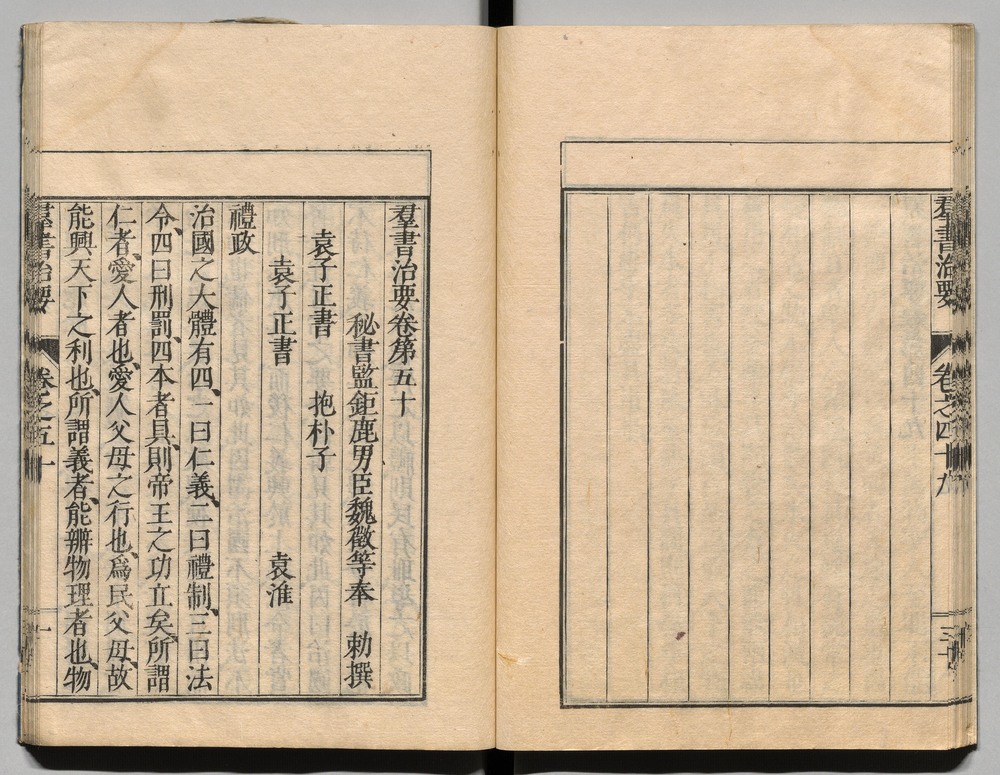 羣書治要
卷之四十九
羣書治要卷第五十
秘書監鉅鹿男臣魏徵等奉 勅撰
袁子正書 抱朴子
袁子正書 袁淮
禮政
治國之大體有四、一曰仁義、二曰禮制、三曰法
令、四曰刑罰、四本者具、則帝王之功立矣、所謂
仁者、愛人者也、愛人父母之行也、爲民父母、故
能興天下之利也、所謂義者、能辨物理者也、物
羣書治要
卷之五十
一